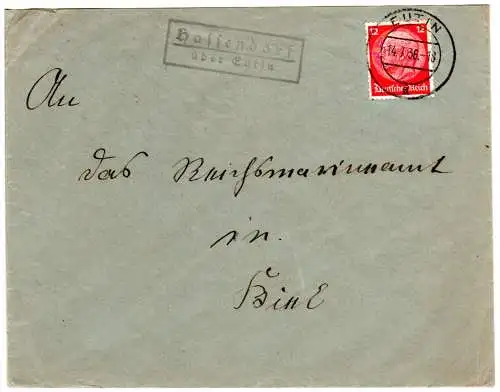 Hassendorf
über Eutin
EUTIN
14.7.36.-18
12 12
Deutsches Reich
An
das Reichsmarineamt
in
Kiel